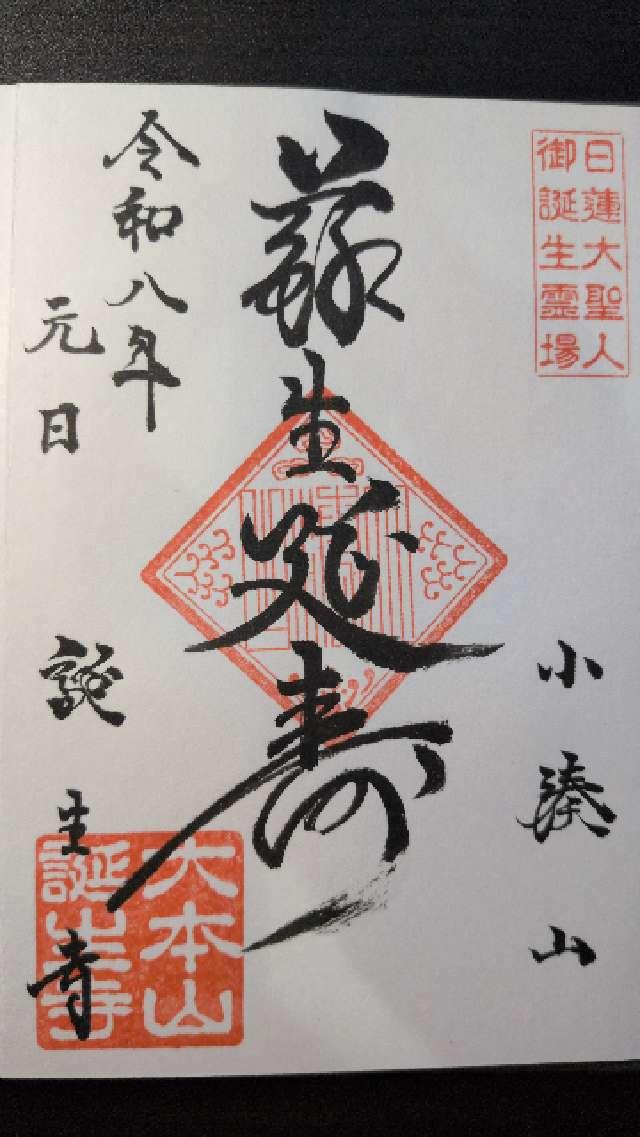 日蓮大聖人
御誕生霊場
小湊山
蘇生延寿
令和八年
元日
誕生寺
大本山
誕生寺